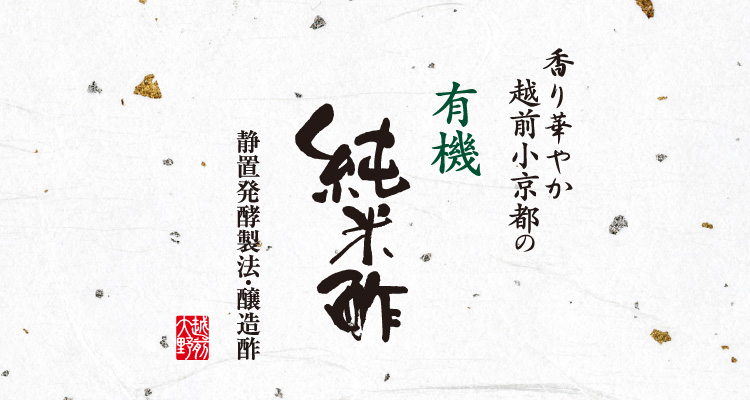 香り華やか
越前小京都の
有機
純米酢
静置発酵製法・醸造酢
越前大野